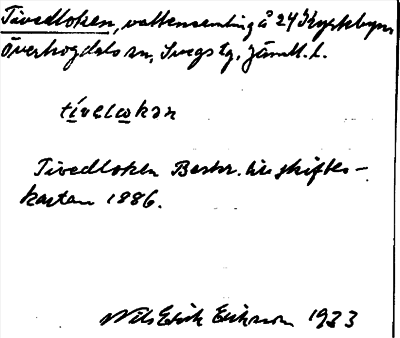 Tivedloken, vattensamling å 24 Kyrkbyn,
Överhogdals sn, Svegs tg, Jämtl. l.
tívelωkən
Tivedloken Beskr. till skiftes-
kartan 1886.
Nils Erik Eriksson 1933